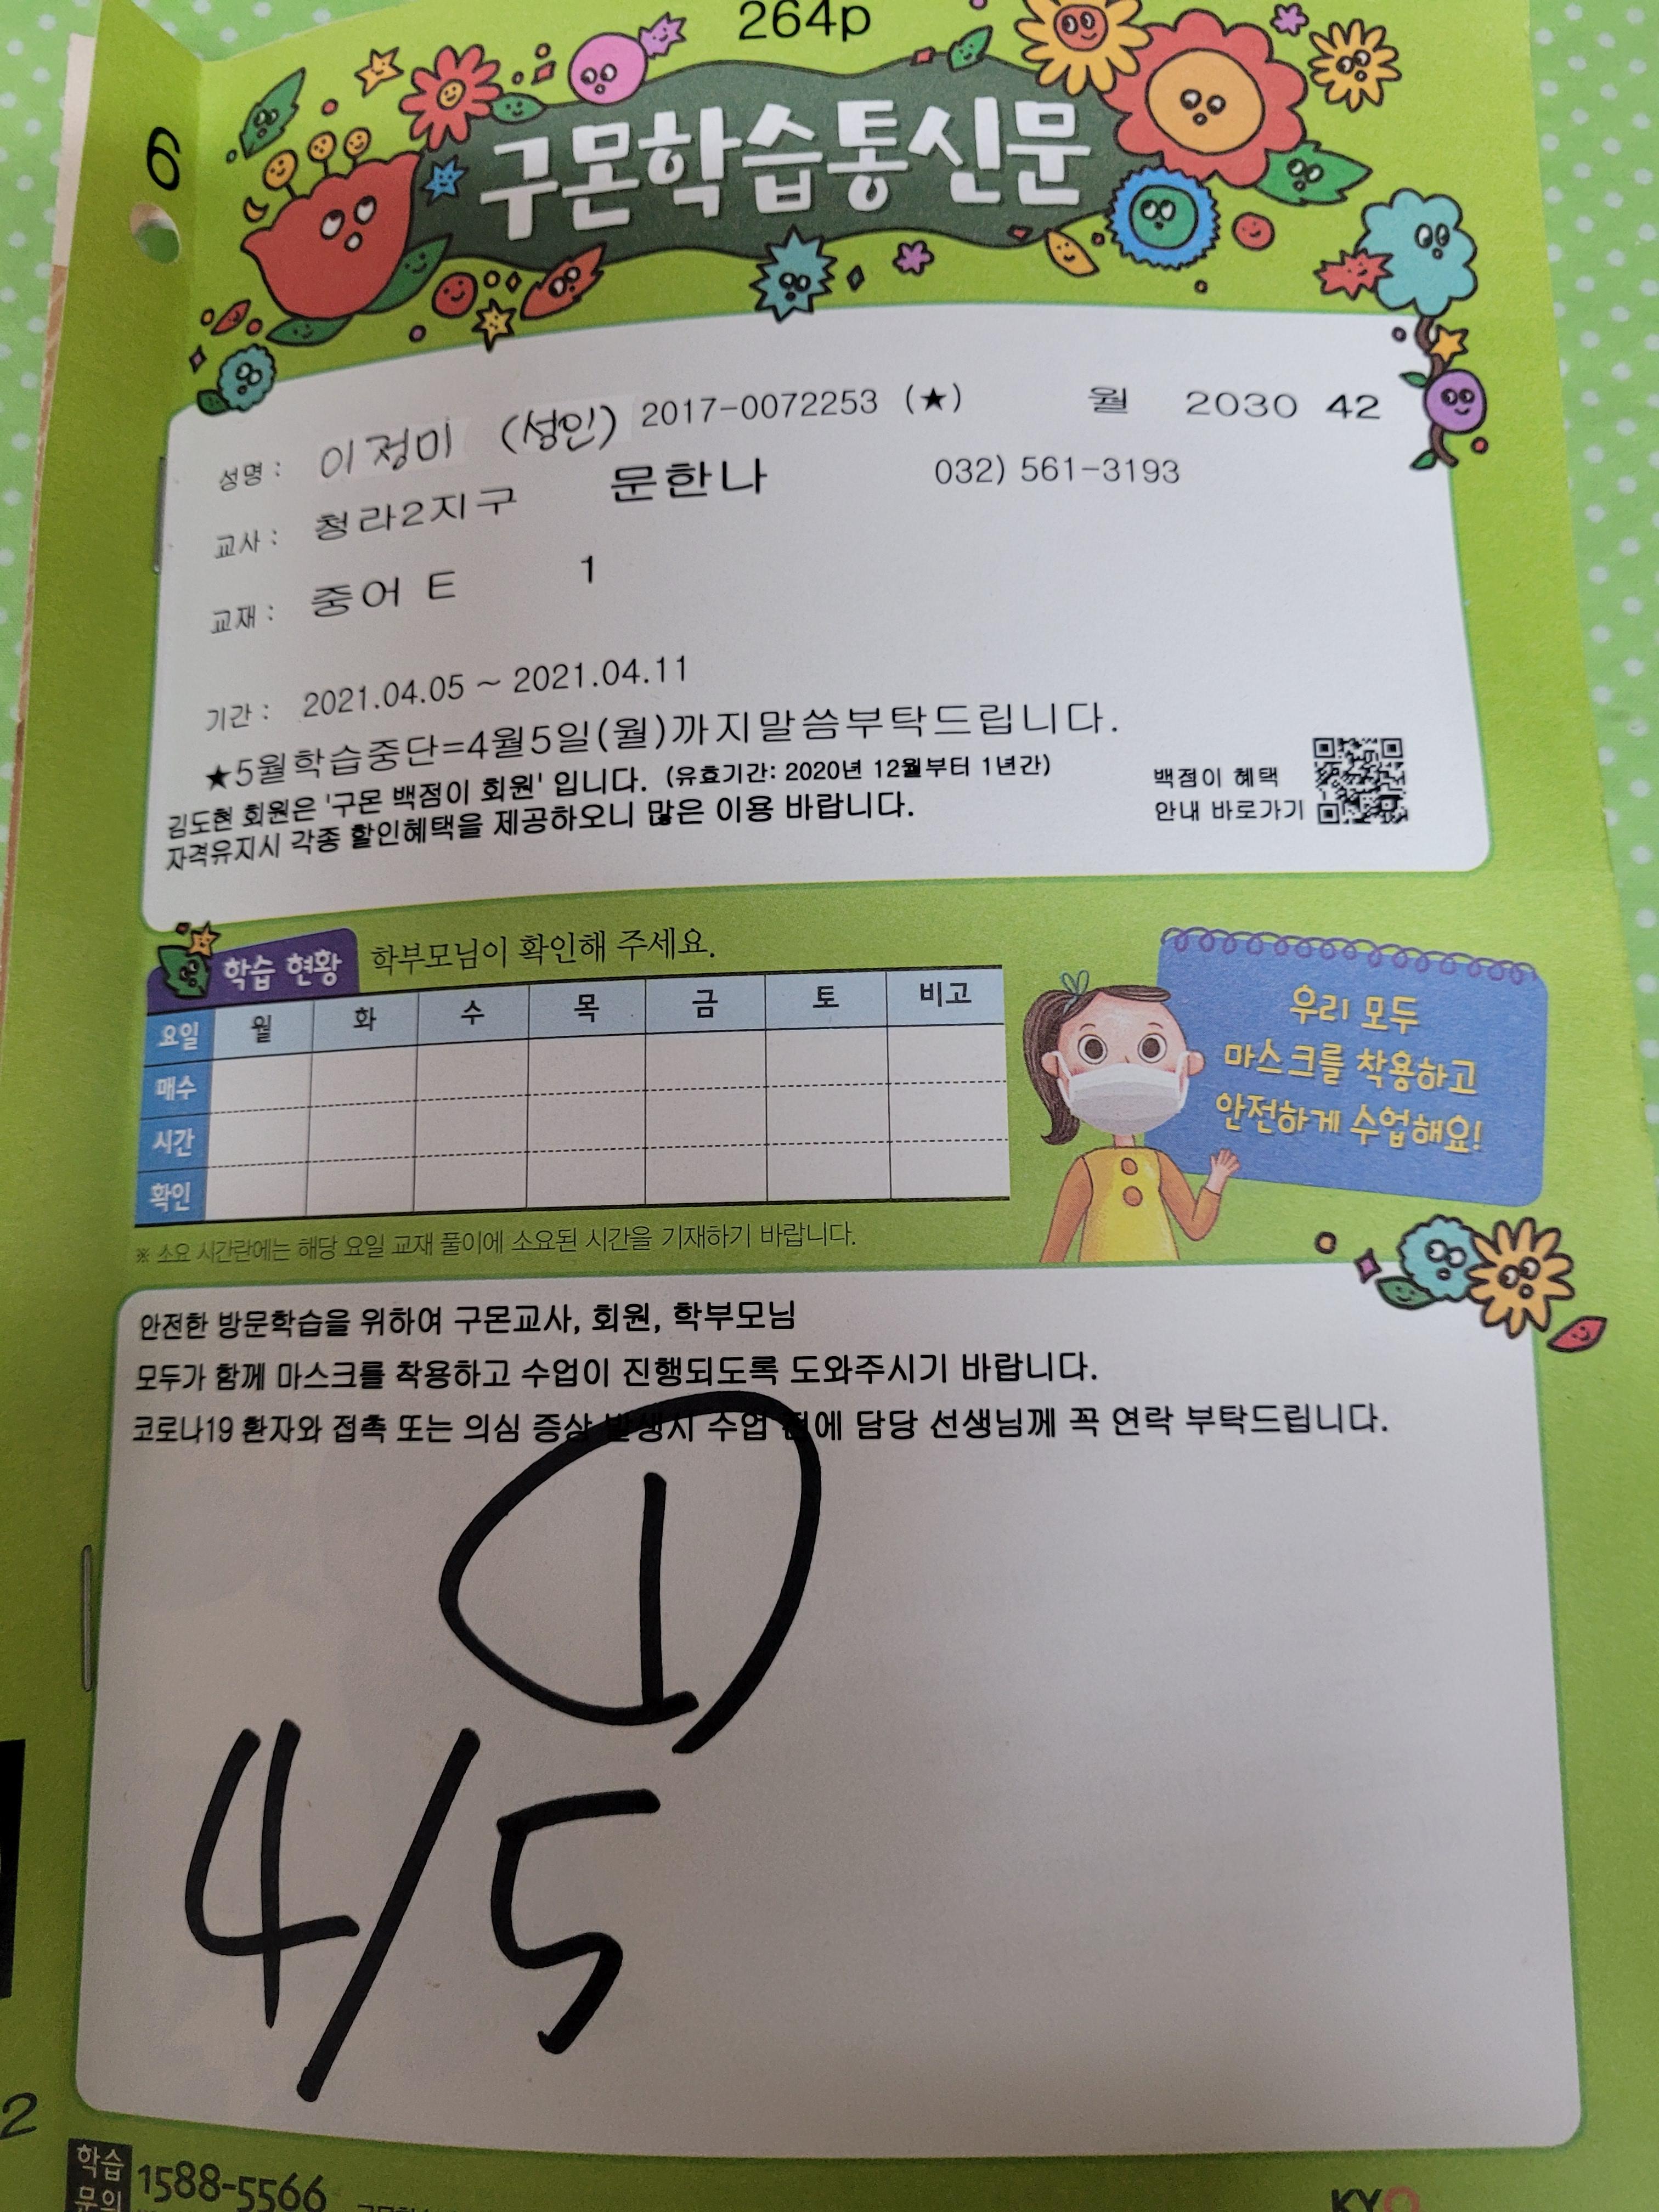 264p
6
구몬학습통신문
성명 : 이정미 (성인) 2017-0072253 (★) 월 2030 42
교사 : 청라2지구 문한나 032) 561-3193
교재 : 중어 E 1
기간 : 2021.04.05 ~ 2021.04.11
★5월학습중단=4월5일(월)까지말씀부탁드립니다.
김도현 회원은 '구몬 백점이 회원' 입니다. (유효기간: 2020년 12월부터 1년간)
자격유지시 각종 할인혜택을 제공하오니 많은 이용 바랍니다.
백점이 혜택
안내 바로가기
학습 현황 학부모님이 확인해 주세요.
요일 월 화 수 목 금 토 비고
매수
시간
확인
※ 소요 시간란에는 해당 요일 교재 풀이에 소요된 시간을 기재하기 바랍니다.
우리 모두
마스크를 착용하고
안전하게 수업해요!
안전한 방문학습을 위하여 구몬교사, 회원, 학부모님
모두가 함께 마스크를 착용하고 수업이 진행되도록 도와주시기 바랍니다.
코로나19 환자와 접촉 또는 의심 증상 발생시 수업 전에 담당 선생님께 꼭 연락 부탁드립니다.
①
4/5
2
학습
문의
1588-5566